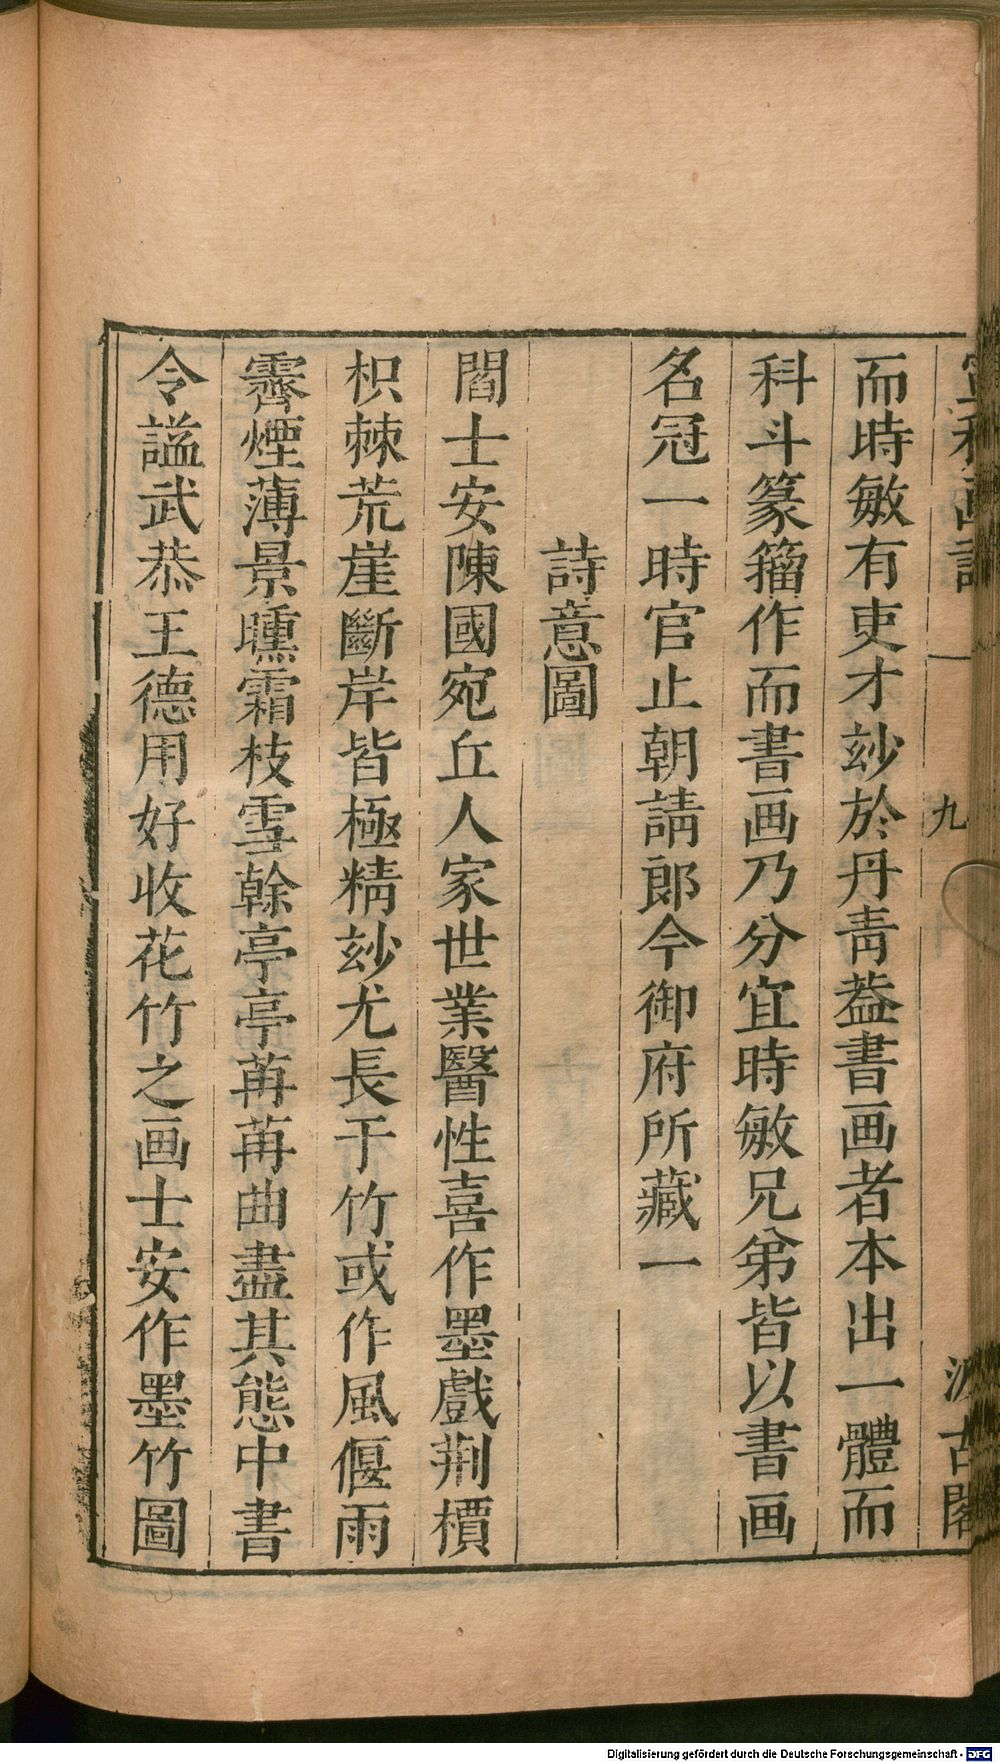 而時敏有吏才玅於丹青葢書画者本出一體而
科斗篆籀作而書画乃分宜時敏兄弟皆以書画
名冠一時官止朝請郎今御府所藏一
詩意圖
閻士安陳國宛丘人家世業醫性喜作墨戲荆檟
枳棘荒崖斷岸皆極精玅尤長于竹或作風偃雨
霽煙薄景曛霜枝雪榦亭亭苒苒曲盡其態中書
令謚武恭王德用好收花竹之画士安作墨竹圖
九
古閣
Digitalisierung gefördert durch die Deutsche Forschungsgemeinschaft - DFG